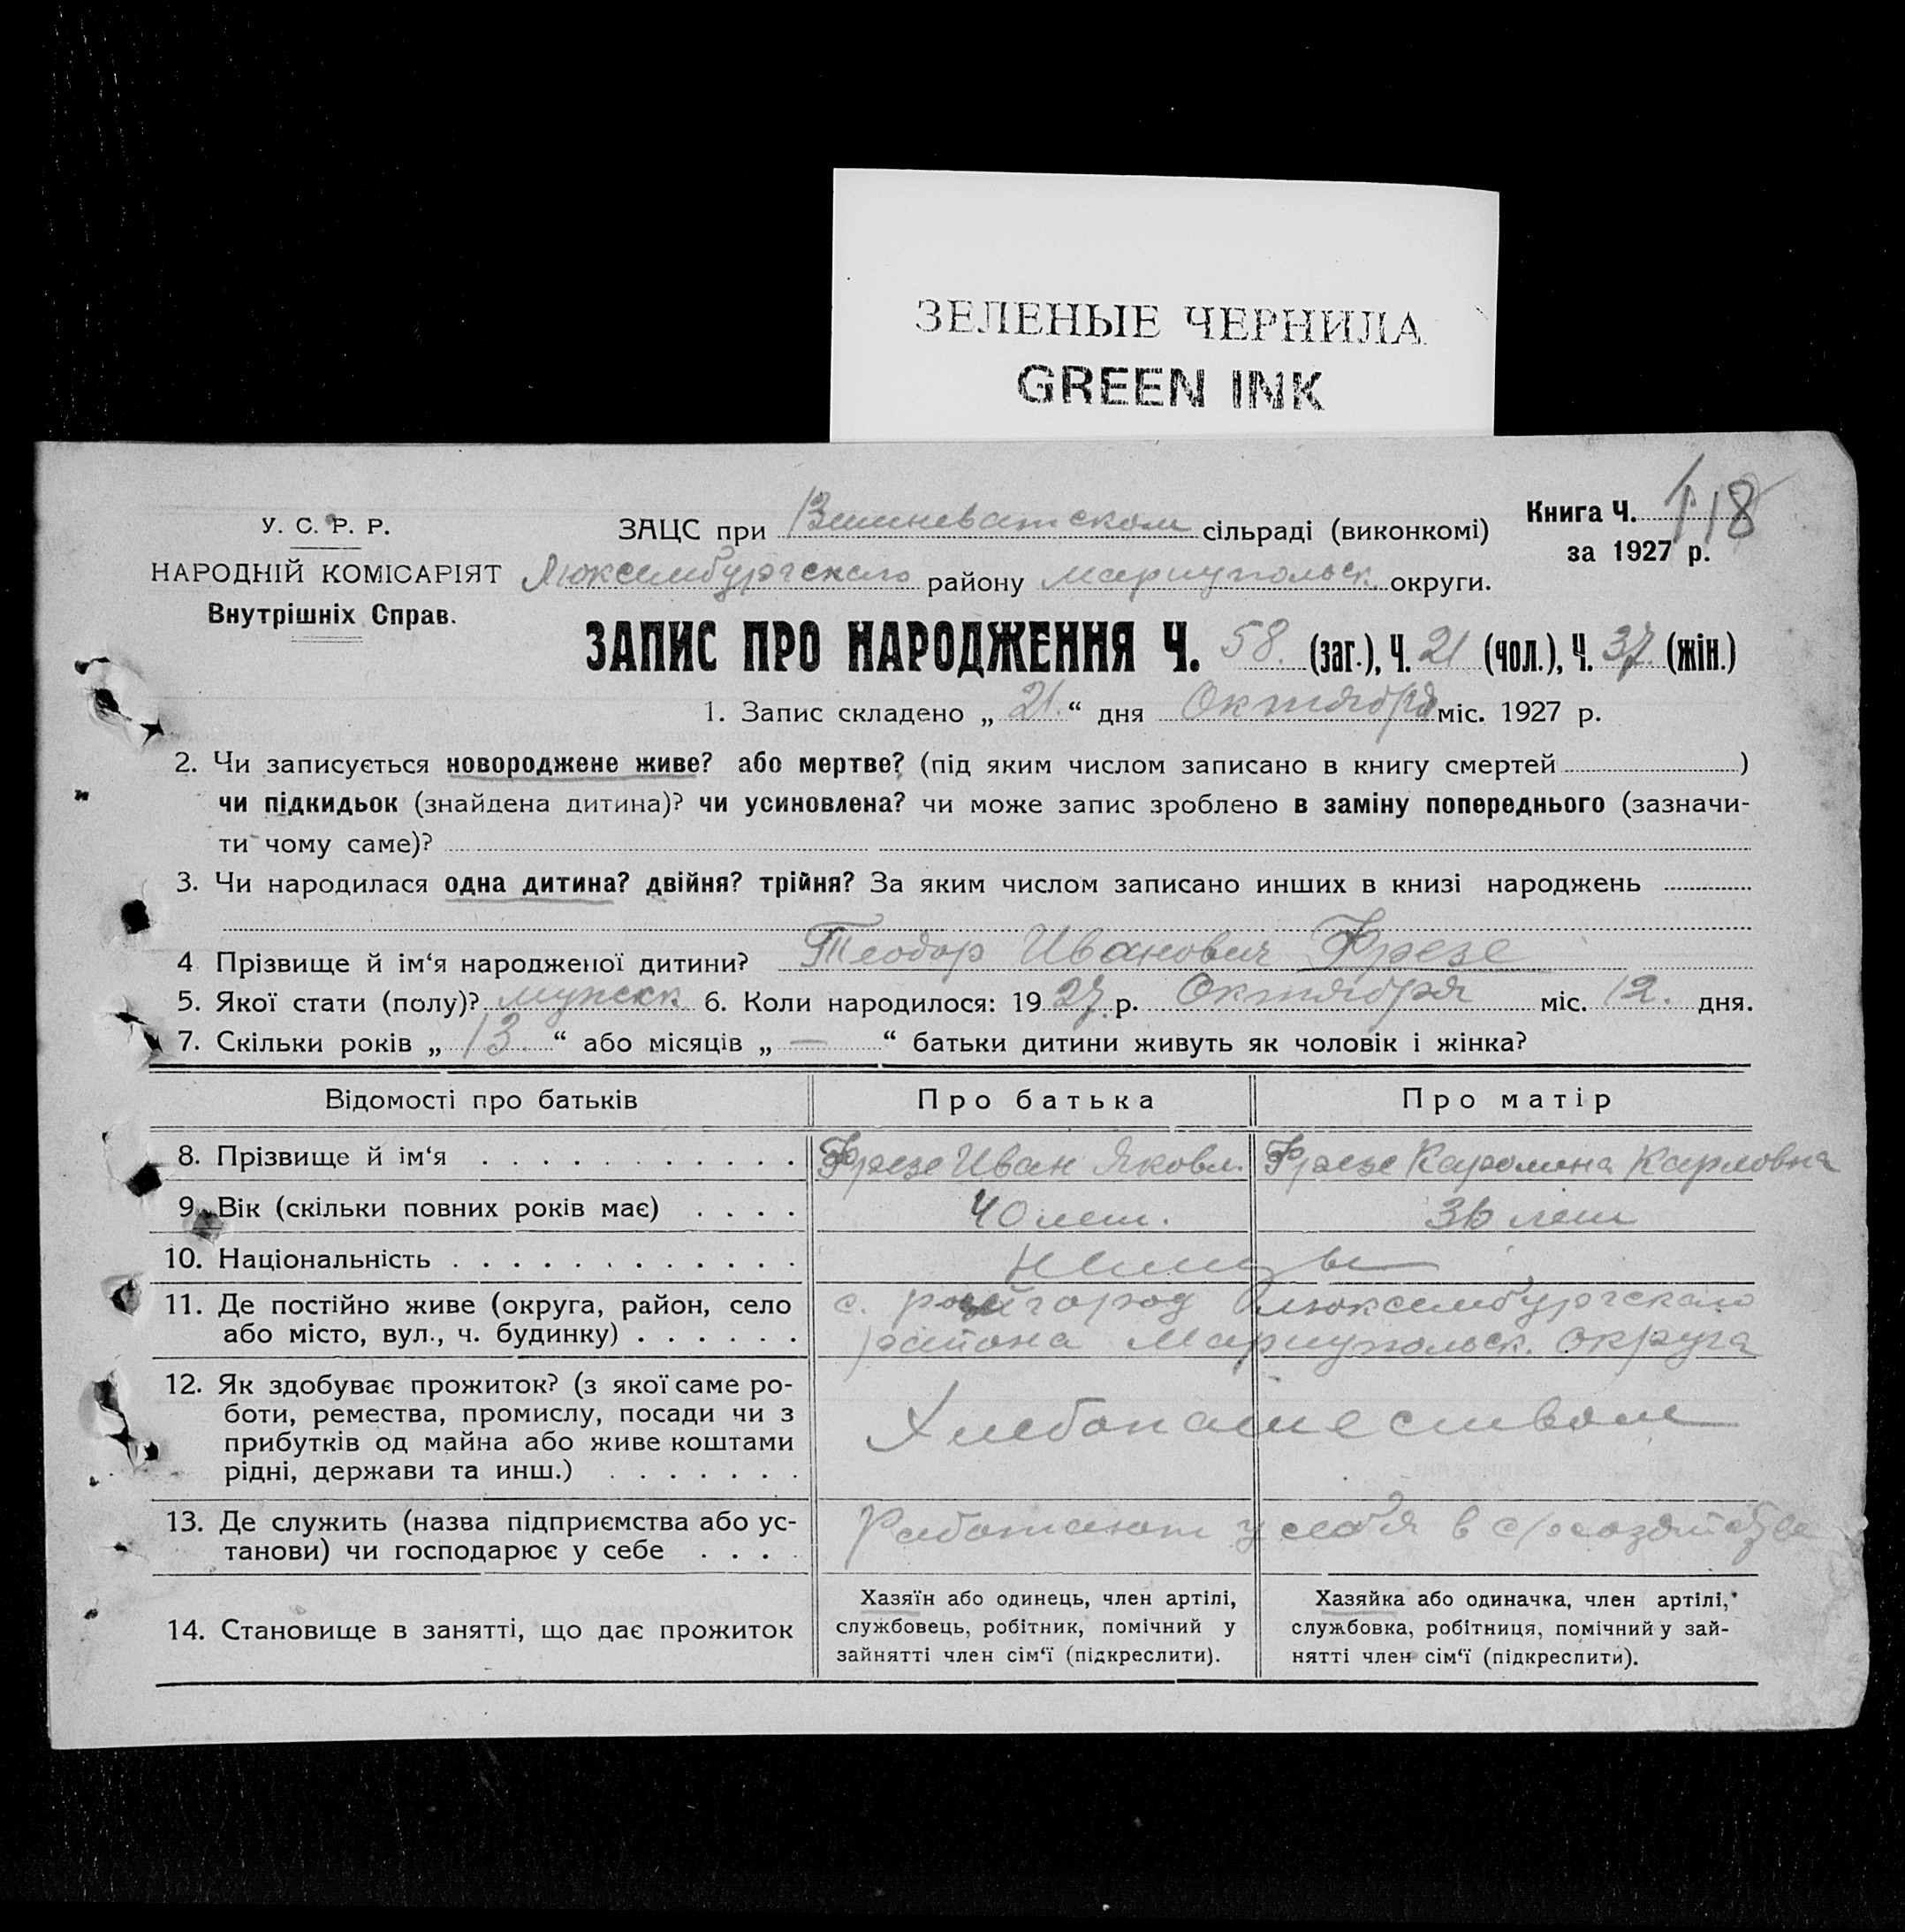 ЗЕЛЕНЫЕ ЧЕРНИЛА
GREEN INK
У. С. Р. Р.
НАРОДНІЙ КОМІСАРІЯТ
Внутрішніх Справ.
ЗАЦС при Вишневатском сільраді (виконкомі)
Люксембургского району Мариупольск. округи.
Книга Ч. 118
за 1927 р.
ЗАПИС ПРО НАРОДЖЕННЯ Ч. 58. (заг.), Ч. 21 (чол.), Ч. 37. (жін.)
1. Запис складено „ 21. “ дня Октября міс. 1927 р.
2. Чи записується новороджене живе? або мертве? (під яким числом записано в книгу смертей )
чи підкидьок (знайдена дитина)? чи усиновлена? чи може запис зроблено в заміну попереднього (зазначи-
ти чому саме)?
3. Чи народилася одна дитина? двійня? трійня? За яким числом записано инших в книзі народжень
4 Прізвище й ім‘я народженої дитини? Теодор Иванович Фрезе
5. Якої стати (полу)? мужск. 6. Коли народилося: 1927. р. Октября міс. 12. дня.
7. Скільки років „ 13. “ або місяців „ — “ батьки дитини живуть як чоловік і жінка?
Відомості про батьків Про батька Про матір
8. Прізвище й ім‘я Фрезе Иван Яковл. Фрезе Каролина Карловна
9. Вік (скільки повних років має) 40 лет. 36 лет
10. Національність немцы
11. Де постійно живе (округа, район, село
або місто, вул., ч. будинку)
с. Люксембургского
района Мариупольск. округа
12. Як здобуває прожиток? (з якої саме ро-
боти, ремества, промислу, посади чи з
прибутків од майна або живе коштами
рідні, держави та инш.)
Хлебопашеством
13. Де служить (назва підприємства або ус-
танови) чи господарює у себе
Работают у себя в
14. Становище в занятті, що дає прожиток
Хазяїн або одинець, член артілі,
службовець, робітник, помічний у
зайнятті член сім‘ї (підкреслити).
Хазяйка або одиначка, член артілі,
службовка, робітниця, помічний у зай-
нятті член сім‘ї (підкреслити).